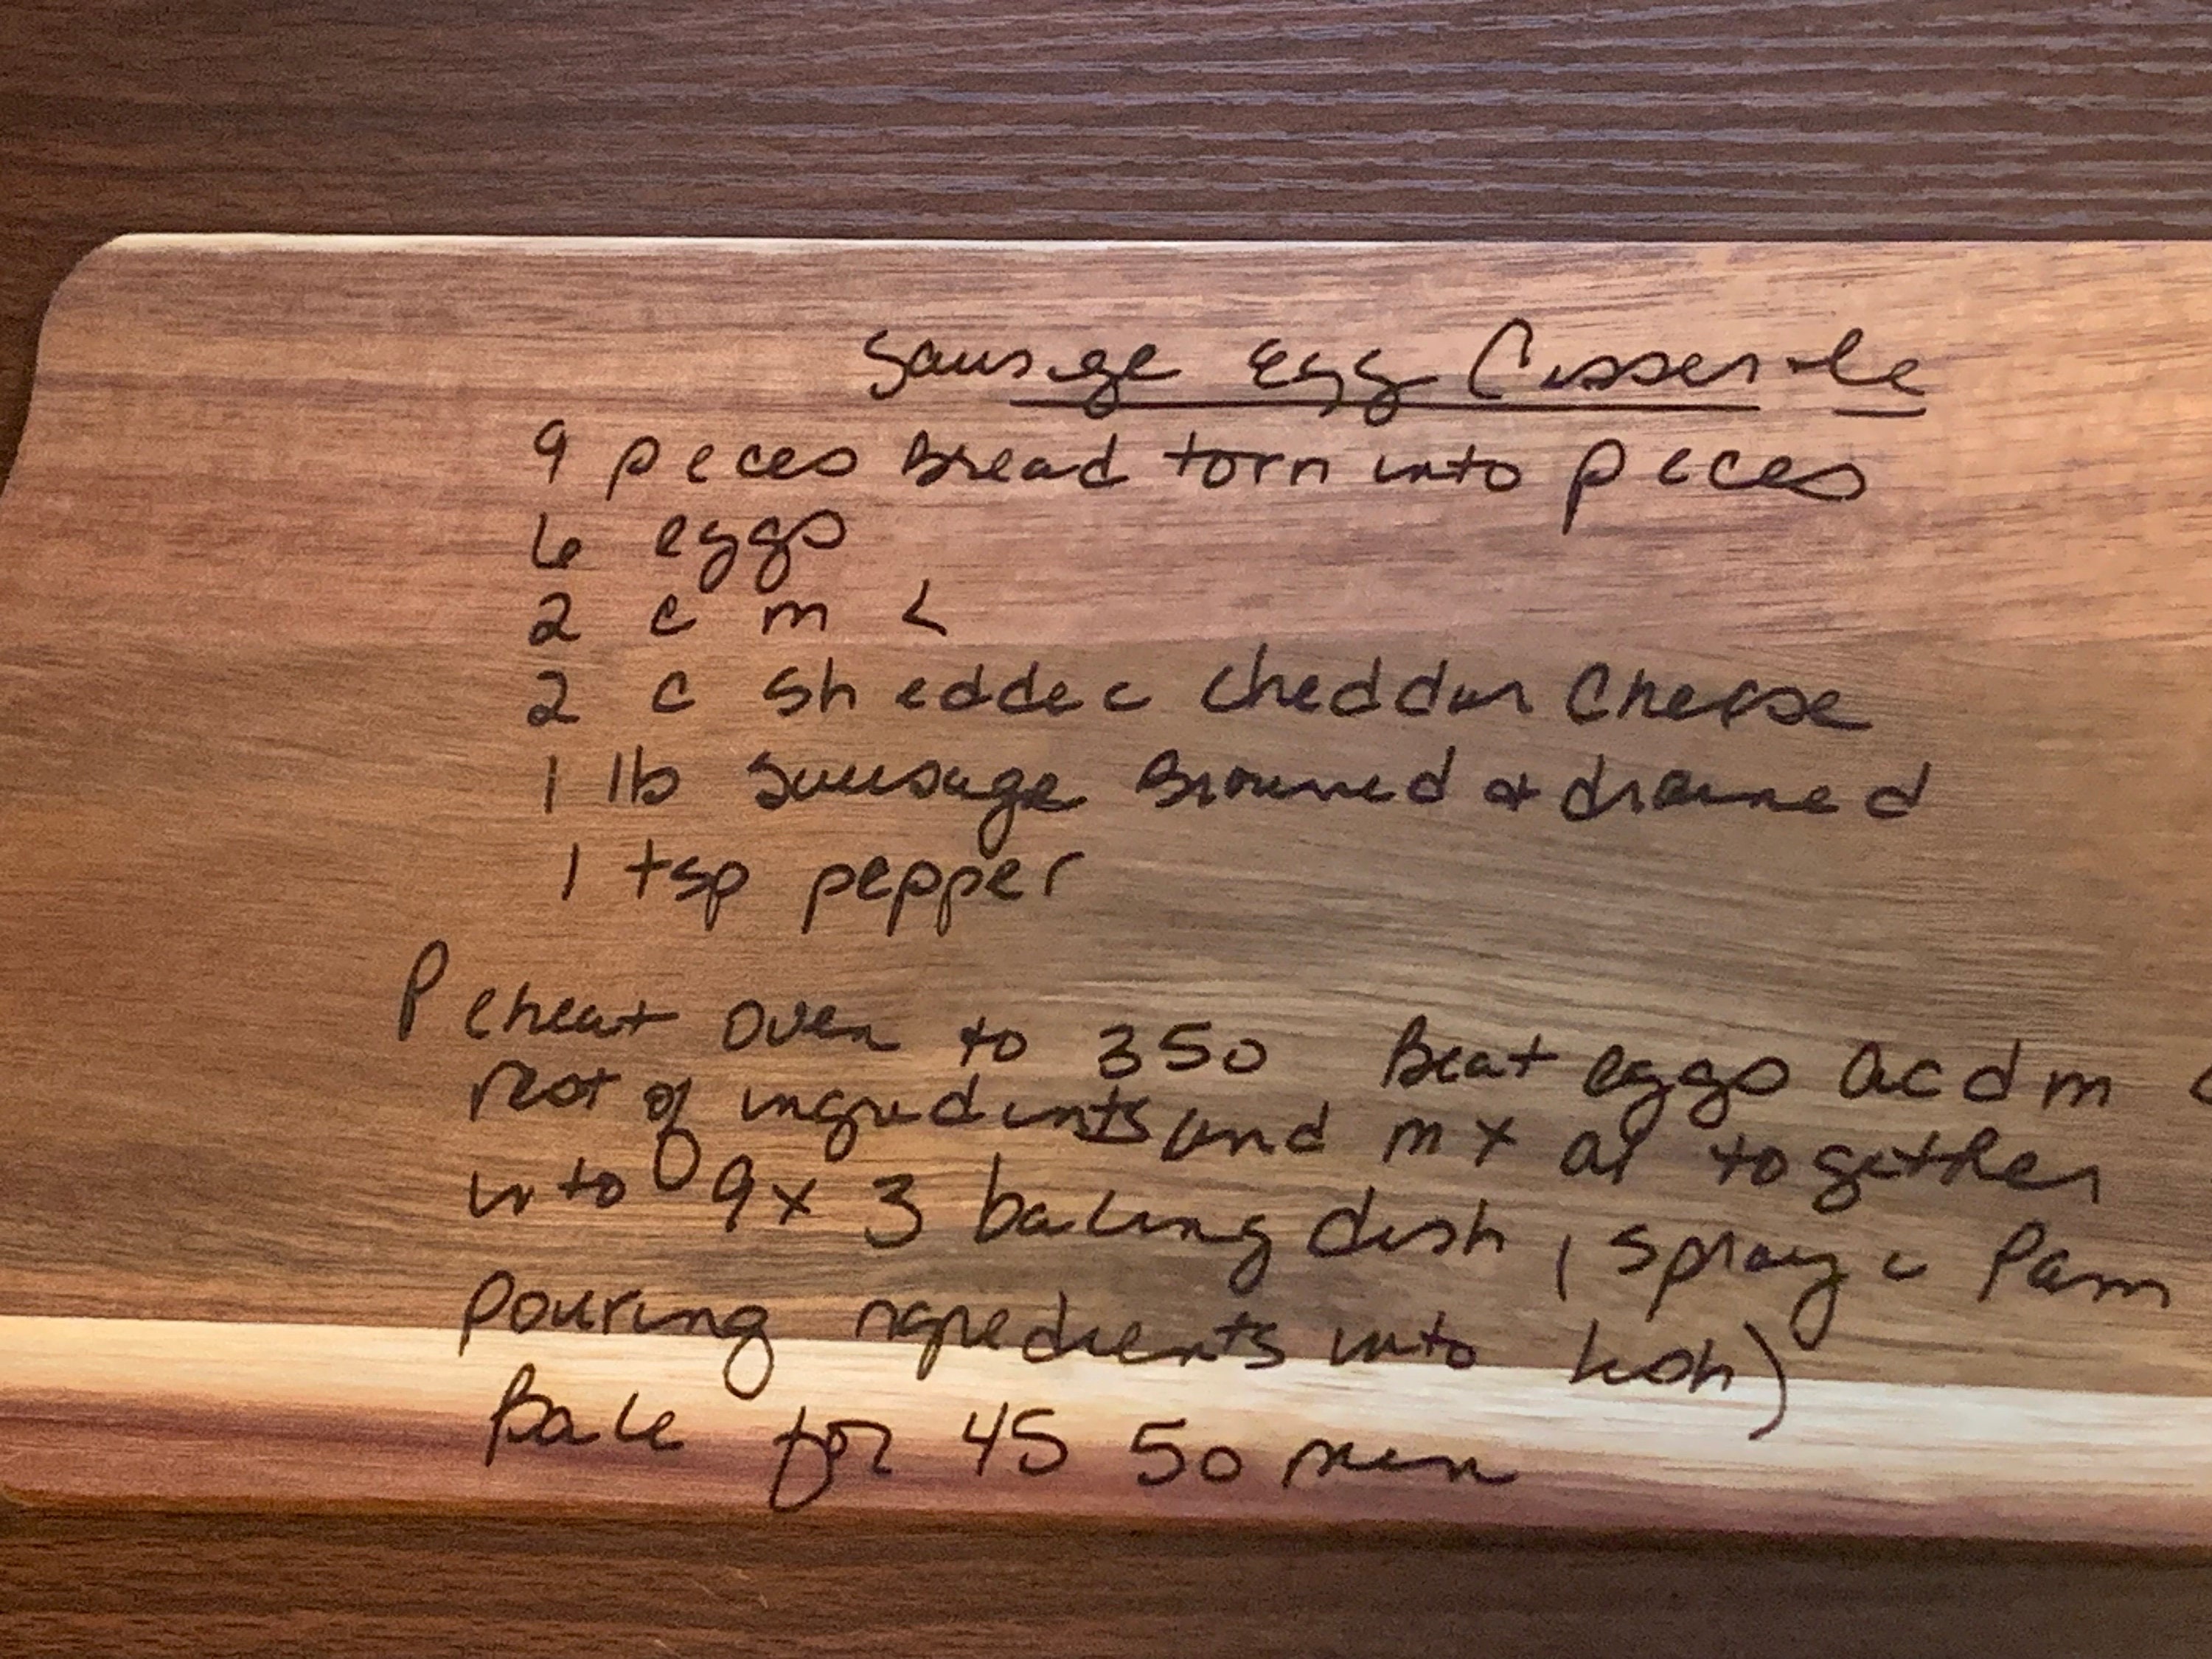 Sausge Egg Casserle
9 peces Bread torn into peces
6 eggs
2 c m
2 c sh edded cheddar cheese
1 lb sausage Browned & drained
1 tsp pepper
P eheat oven to 350 Beat eggs add m
rest of ingredients and m x al together
into 9x 3 baking dish, (spray c Pam
pouring ngredients into
Bake for 45 50 min